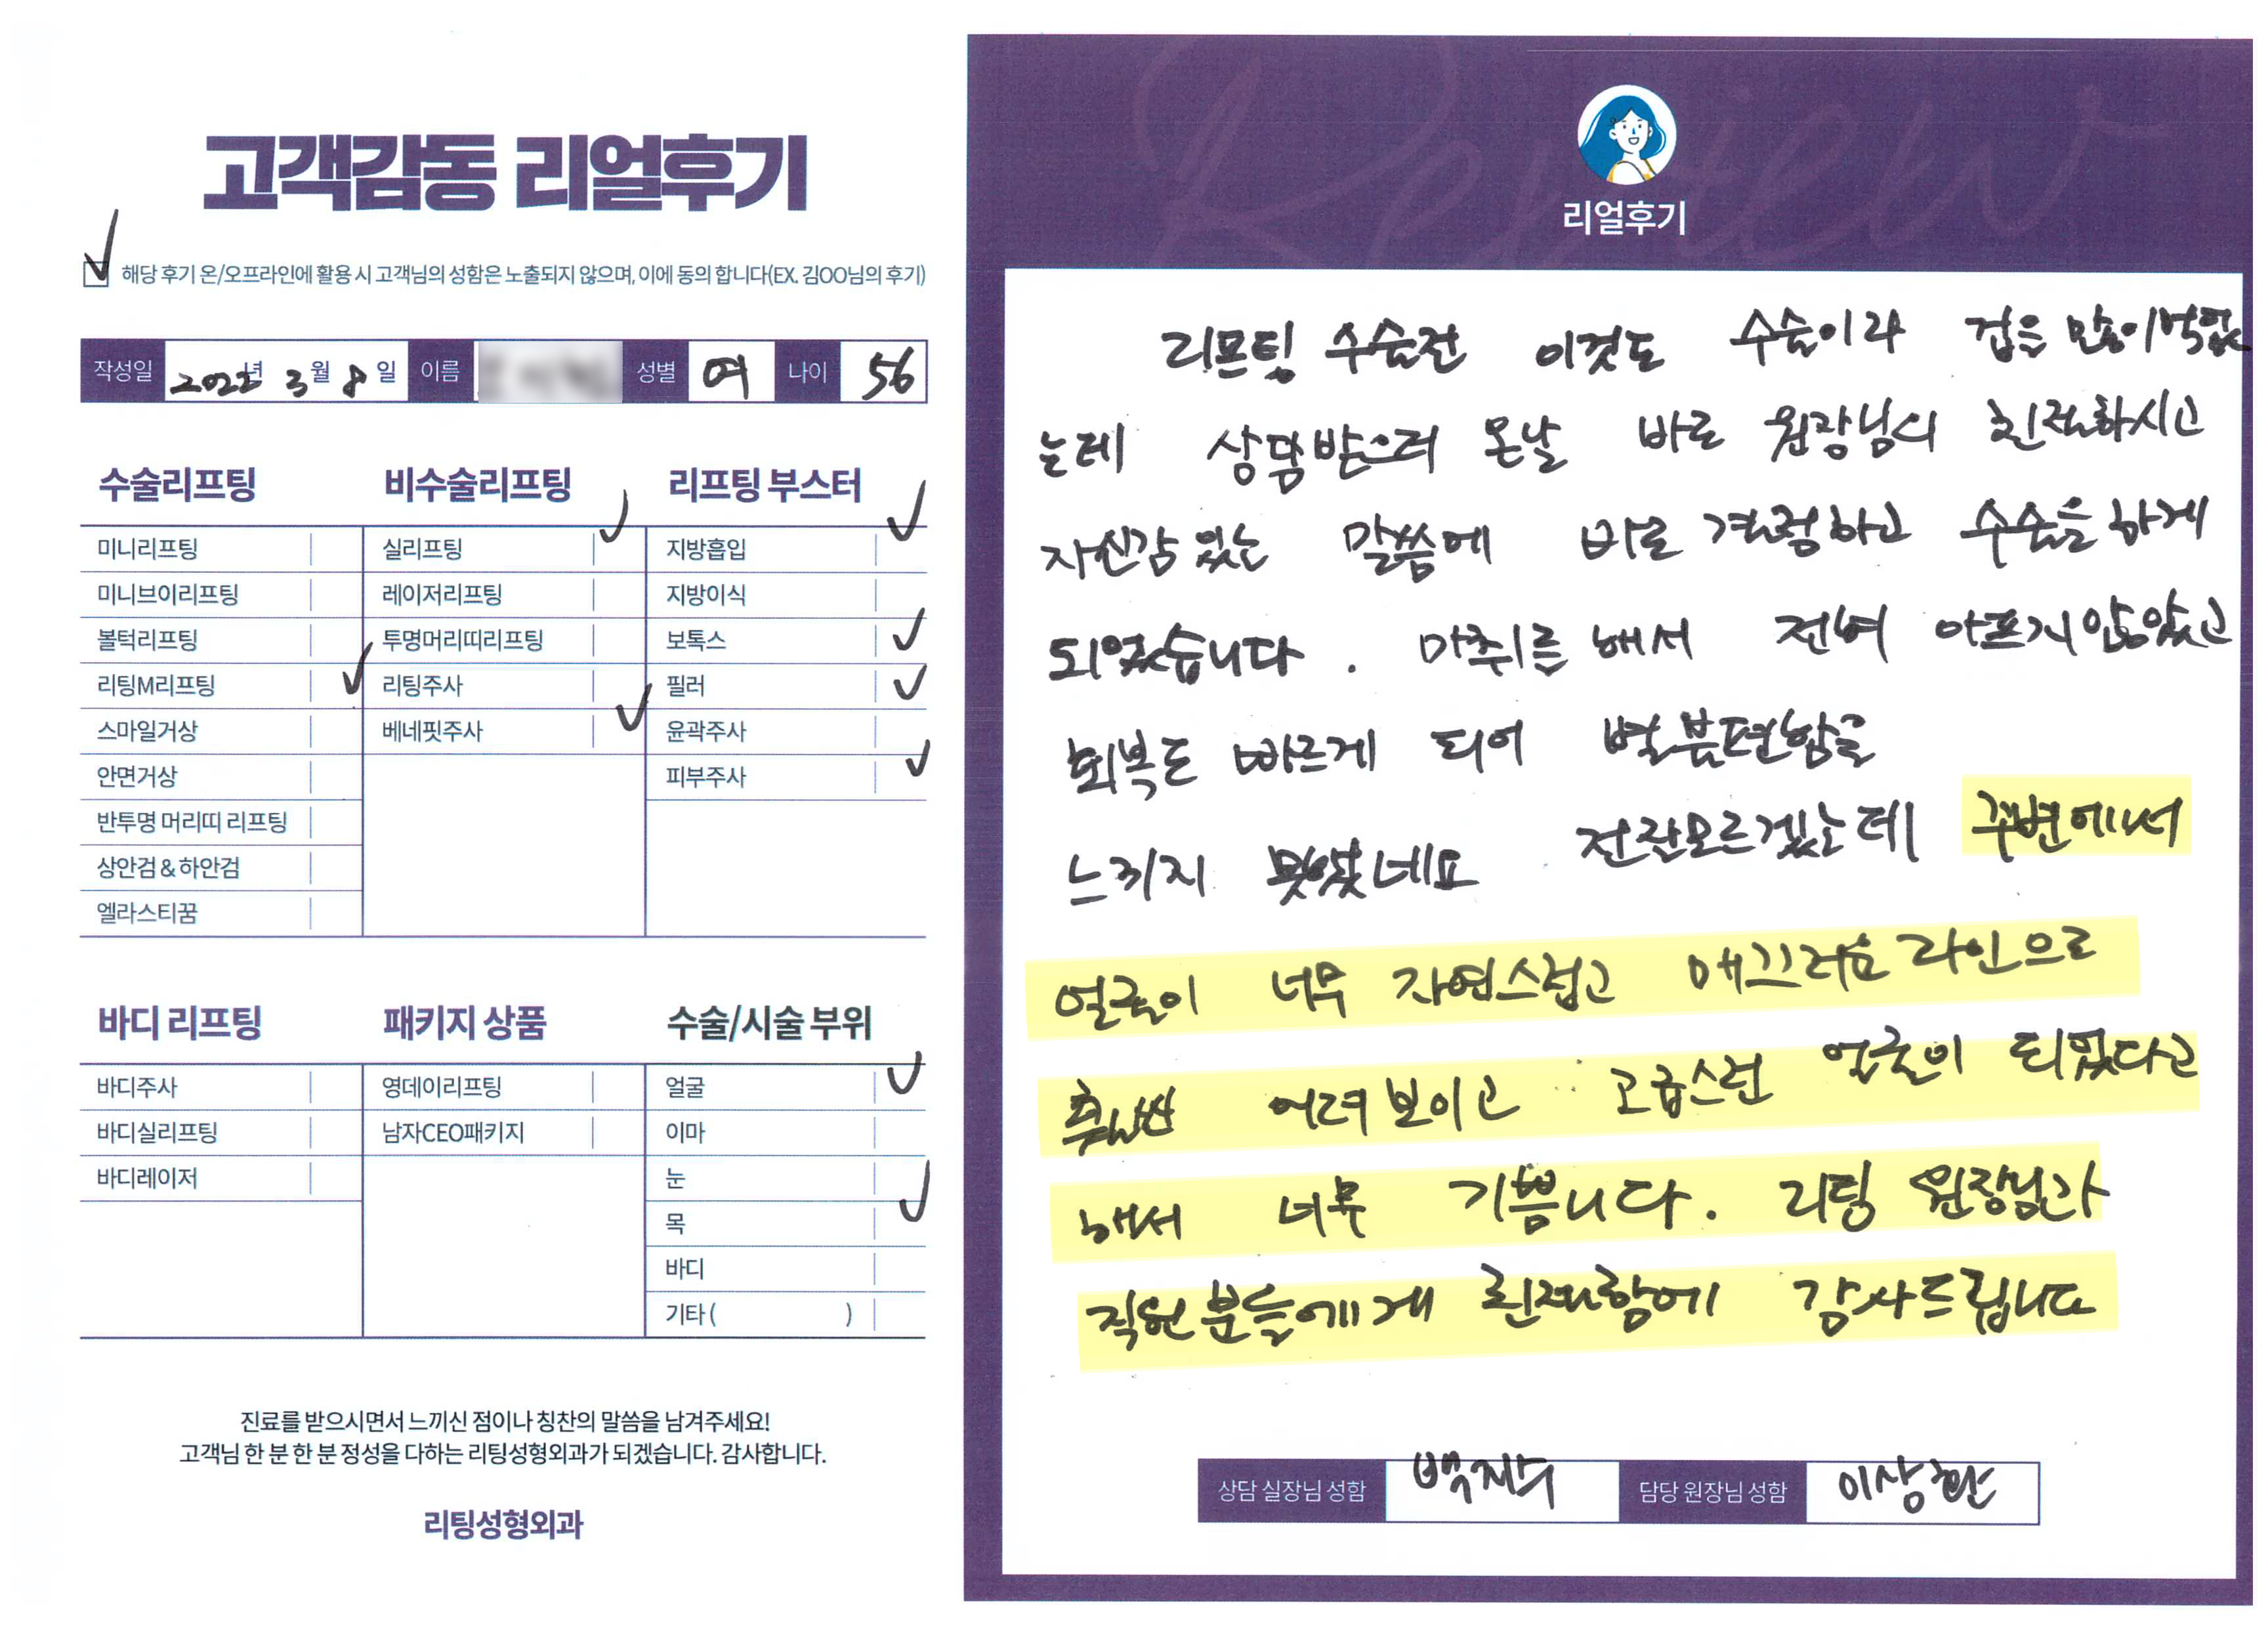 고객감동 리얼후기
✓ 해당 후기 온/오프라인에 활용 시 고객님의 성함은 노출되지 않으며, 이에 동의 합니다(EX. 김OO님의 후기)
작성일 2022년 3월 8일 이름 성별 여 나이 56
수술리프팅
미니리프팅
미니브이리프팅
볼턱리프팅
리팅M리프팅 ✓
스마일거상
안면거상
반투명 머리띠 리프팅
상안검 & 하안검
엘라스티꿈
비수술리프팅
실리프팅 ✓
레이저리프팅
투명머리띠리프팅
리팅주사
베네핏주사 ✓
리프팅 부스터
지방흡입 ✓
지방이식
보톡스 ✓
필러 ✓
윤곽주사
피부주사 ✓
바디 리프팅
바디주사
바디실리프팅
바디레이저
패키지 상품
영데이리프팅
남자CEO패키지
수술/시술 부위
얼굴 ✓
이마
눈
목 ✓
바디
기타 ( )
진료를 받으시면서 느끼신 점이나 칭찬의 말씀을 남겨주세요!
고객님 한 분 한 분 정성을 다하는 리팅성형외과가 되겠습니다. 감사합니다.
리팅성형외과
Review
리얼후기
리프팅 수술전 이것도 수술이라 겁을 많이먹었
는데 상담받으러 온날 바로 원장님의 친절하시고
자신감 있는 말씀에 바로 결정하고 수술을 하게
되었습니다. 마취를 해서 전혀 아프지않았고
회복도 빠르게 되어 별불편함을
느끼지 못했네요 전잘모르겠는데 주변에서
얼굴이 너무 자연스럽고 매끄러운 라인으로
훨씬 어려보이고 고급스런 얼굴이 되었다고
해서 너무 기쁩니다. 리팅 원장님과
직원분들에게 친절함에 감사드립니다
상담 실장님 성함 백지수 담당 원장님 성함 이상환